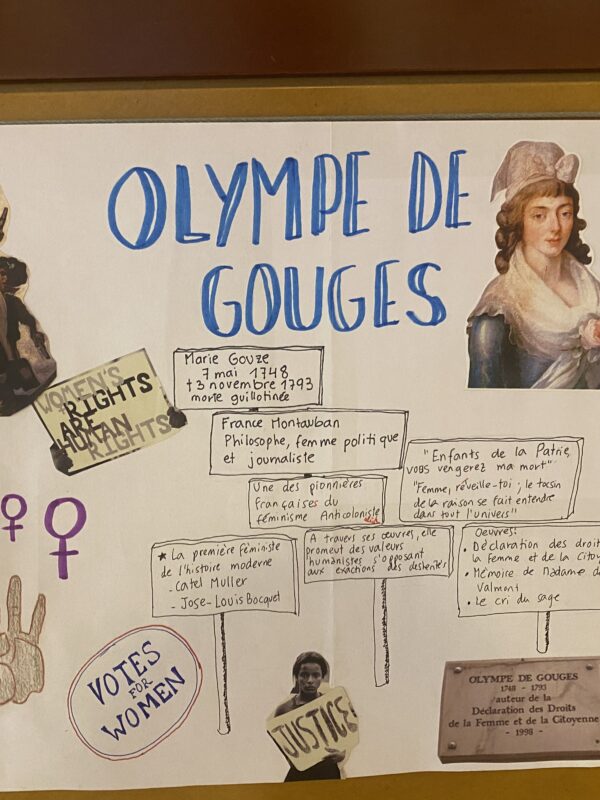 OLYMPE DE
GOUGES
WOMEN'S
RIGHTS
ARE
HUMAN
RIGHTS
Marie Gouze
7 mai 1748
†3 novembre 1793
morte guillotinée
France Montauban
Philosophe, femme politique
et journaliste
"Enfants de la Patrie,
vous vengerez ma mort"
"Femme, réveille-toi ; le tocsin
de la raison se fait entendre
dans tout l'univers"
Une des pionnières
françaises du
féminisme Anticoloniste
A travers ses œuvres, elle
promeut des valeurs
humanistes s'opposant
aux exactions des
★ La première féministe
de l'histoire moderne
- Catel Muller
- Jose-Louis Bocquet
Oeuvres:
• Déclaration des droit
la femme et de la Citoy
• Mémoire de Madame d
Valmont
• Le cri du sage
VOTES
FOR
WOMEN
JUSTICE
OLYMPE DE GOUGES
1748 - 1793
auteur de la
Déclaration des Droits
de la Femme et de la Citoyenne
- 1998 -